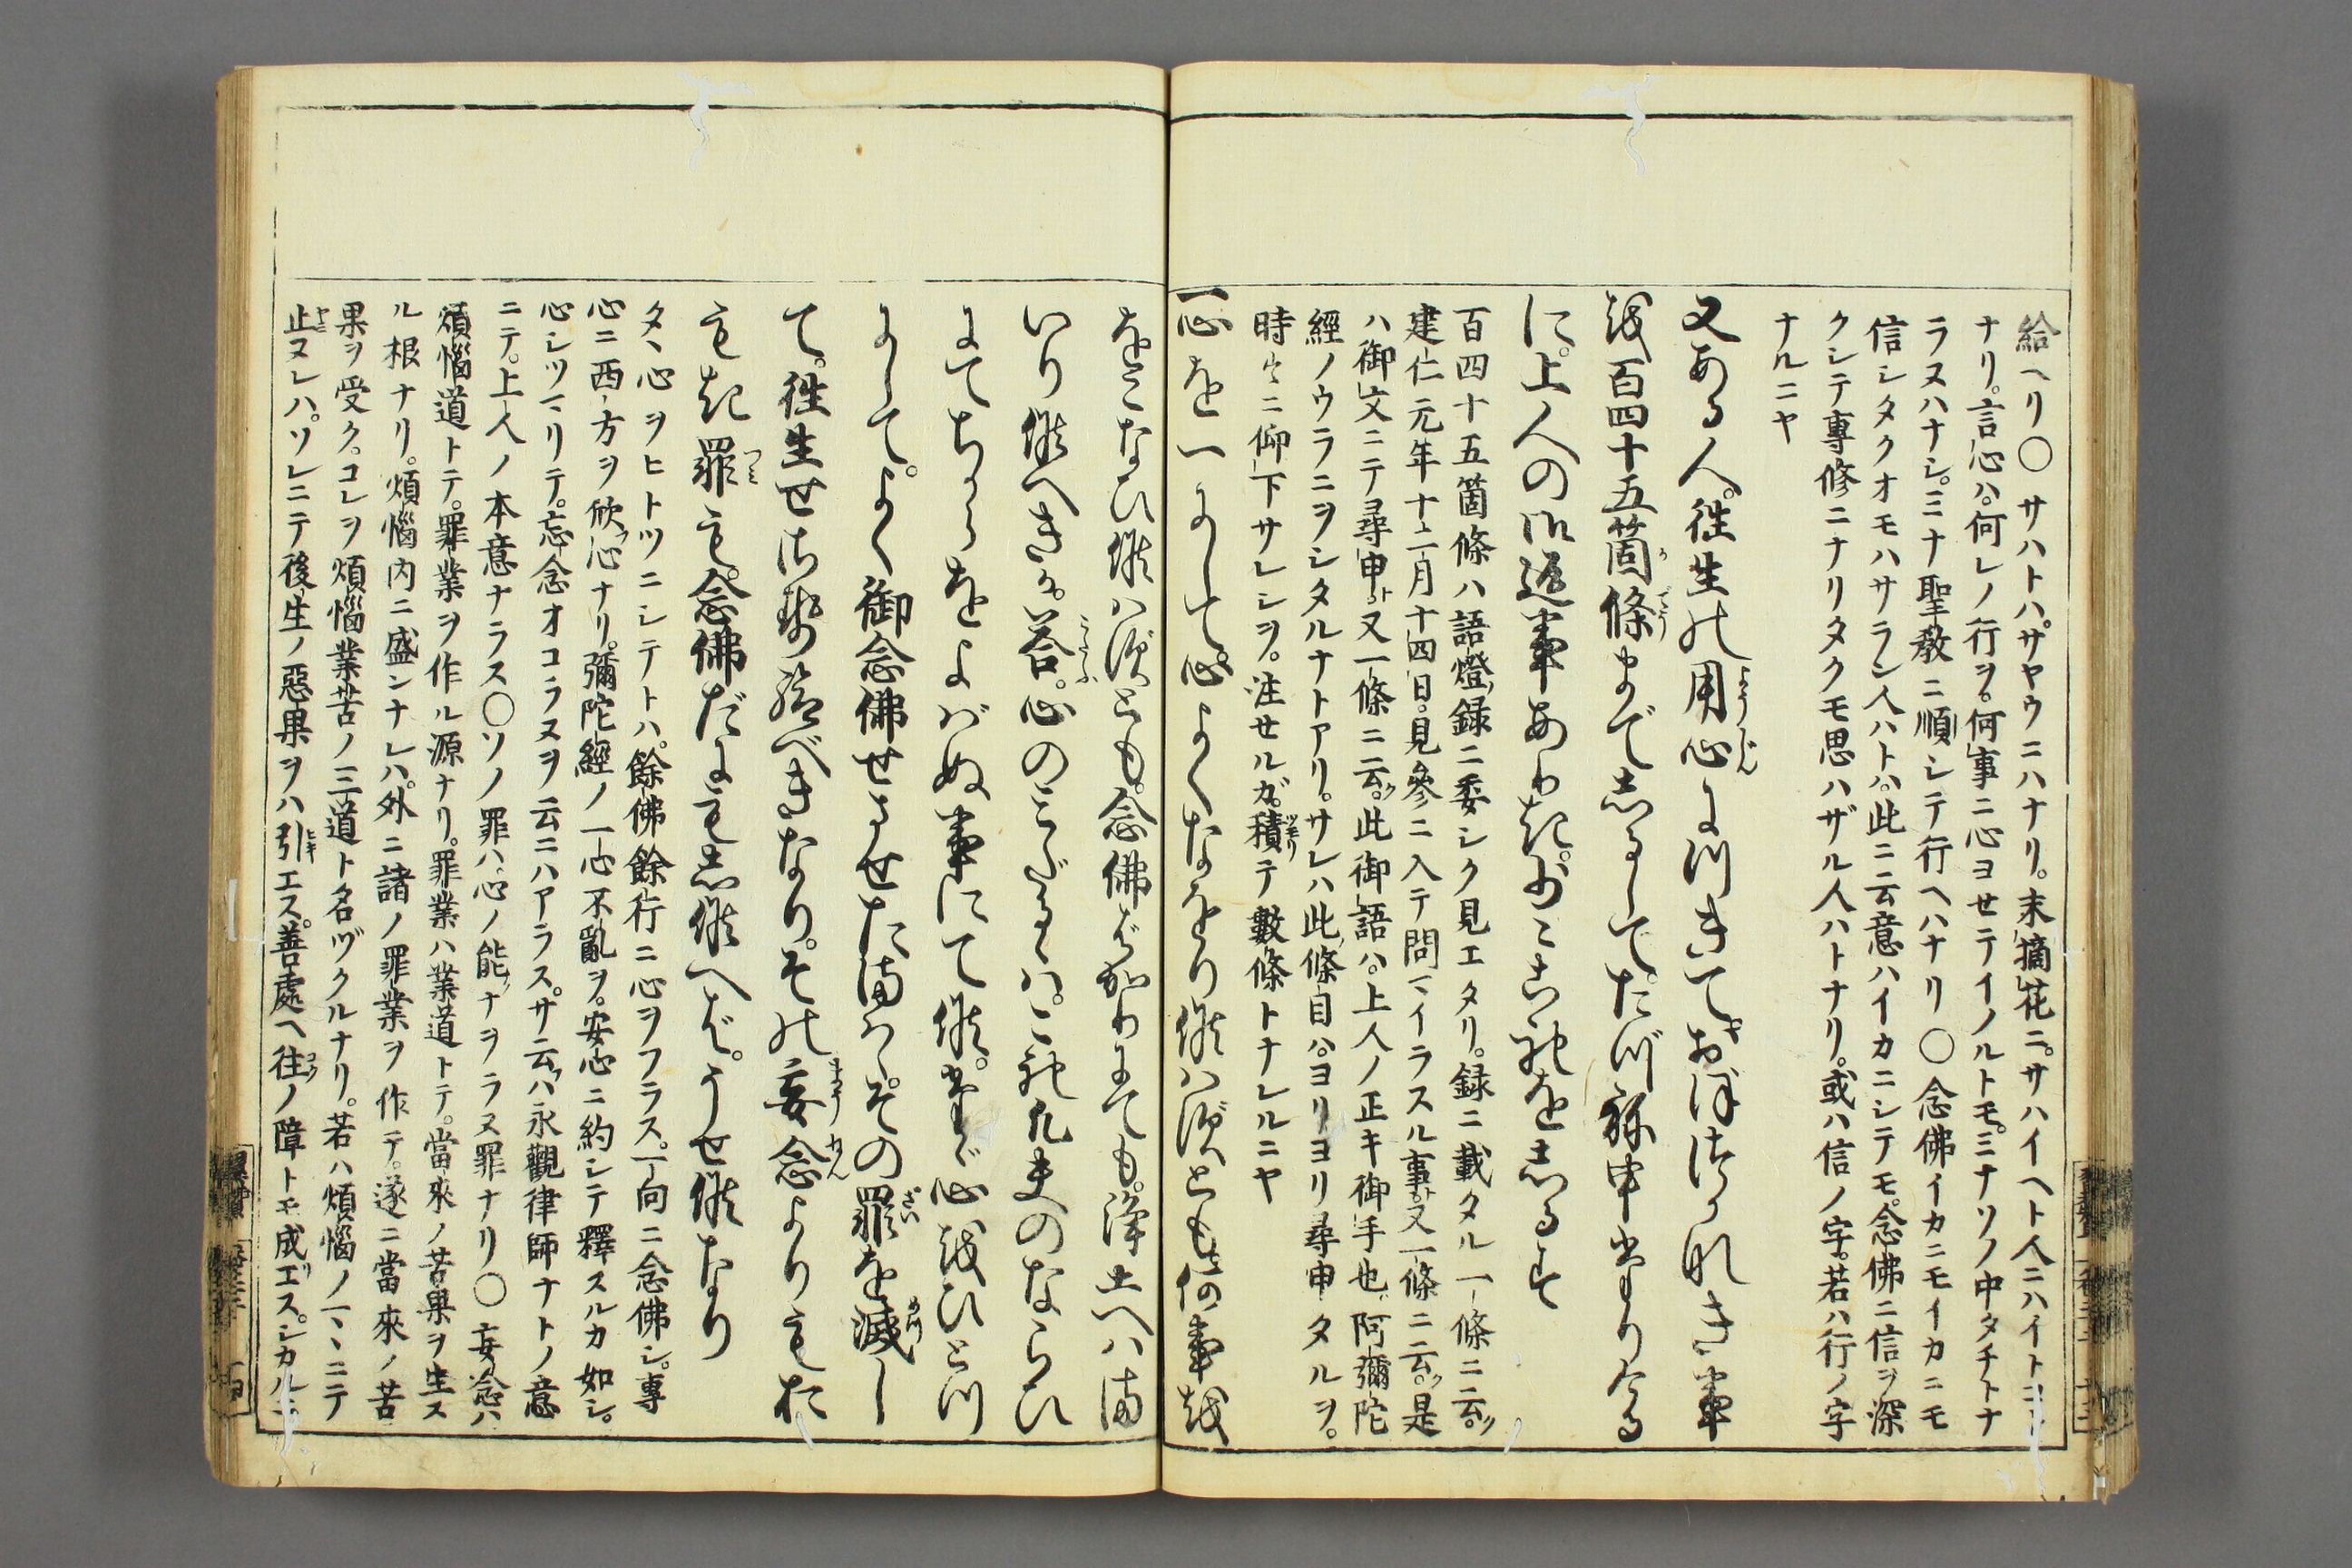 給ヘリ○サハトハ。サヤウニハナリ。末摘花ニ。サハイヘト人ニハイト
ナリ。言心ハ。何レノ行ヲ。何事ニ心ヨセテイノルトモ。ミナソノ中タチトナ
ラヌハナシ。ミナ聖教ニ順シテ行ヘハナリ○念佛イカニモイカニモ
信シタクオモハサラン人ハトハ。此ニ云意ハイカニシテモ。念佛ニ信ヲ深
クシテ專修ニナリタクモ思ハザル人ハトナリ。或ハ信ノ字。若ハ行ノ字
ナルニヤ
又ある人。徃生の用心につきて。おぼつかなき事
を百四十五箇條まてしるして。たづね申けりける
に。上人の御返事ありき。少々これをしるす
百四十五箇條ハ語燈録ニ委シク見エタリ。録ニ載タル一條ニ云。
建仁元年十二月十四日。見參ニ入テ問マイラスル事。又一條ニ云。是
ハ御文ニテ尋申。又一條ニ云。此御語ハ。上人ノ正キ御手也。阿彌陀
經ノウラニヲシタルナトアリ。サレハ此條目ハ。ヨリヨリ尋申タルヲ。
時々ニ仰下サレシヲ。注セルガ。積テ數條トナレルニヤ
一心を一にして。心よくなをり候はずとも。何事を
をこなひ候はずとも。念佛ばかりにても。淨土へはま
いり候へきか。答。心のみだるゝは。これ凡夫のならひ
にてちからをよばぬ事にて候。たゞ心をひとつ
にして。よく御念佛せさせたまはゝ。その罪を滅し
て。徃生せさせ給べきなり。その妄念よりもお
もき罪も。念佛だにもし候へば。うせ候なり
タヽ心ヲヒトツニシテトハ。餘佛餘行ニ心ヲフラス。一向ニ念佛シ。專
心ニ西方ヲ欣心ナリ。彌陀經ノ一心不亂ヲ。安心ニ約シテ釋スルカ如シ。
心シツマリテ。忘念オコラヌヲ云ニハアラス。サ云ハ永觀律師ナトノ意
ニテ。上人ノ本意ナラス○ソノ罪ハ。心ノ能ナヲラヌ罪ナリ○妄念ハ
煩惱道トテ。罪業ヲ作ル源ナリ。罪業ハ業道トテ。當來ノ苦果ヲ生ス
ル根ナリ。煩惱内ニ盛ンナレハ。外ニ諸ノ罪業ヲ作テ。遂ニ當來ノ苦
果ヲ受ク。コレヲ煩惱業苦ノ三道ト名ヅクルナリ。若ハ煩惱ノマヽニテ
止ヌレハ。ソレニテ後生ノ惡果ヲハ引エス。善處ヘ往ノ障トモ成エス。シカルニ